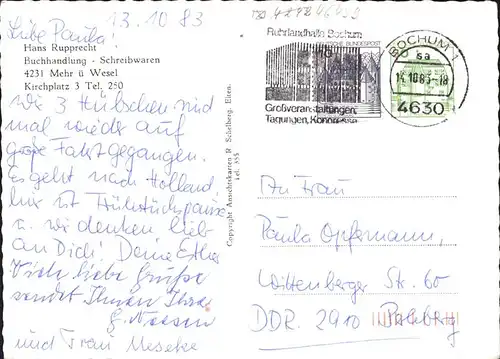 13.10.83
Liebe Paula!
Hans Rupprecht
Buchhandlung - Schreibwaren
4231 Mehr ü Wesel
Kirchplatz 3 Tel. 250
Wir 3 Hübschen sind
mal wieder auf
große Fahrt gegangen.
Es geht nach Holland,
hier ist Frühstückspause
u. wir denken lieb
an Dich! Deine Esther
Viele liebe Grüße
sendet Ihnen Ihre
und Frau
Copyright Ansichtskarten R. Schelberg Elten.
Tel. 355
Ruhrlandhalle Bochum
Großveranstaltungen,
Tagungen, Kongresse
DEUTSCHE BUNDESPOST
BOCHUM 1
sa
14.10.83-18
4630
An Frau
Paula Opfermann,
Wittenberger Str. 60
DDR. 2910